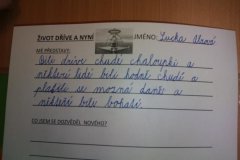 ŽIVOT DŘÍVE A NYNÍ JMÉNO: Lucka
MÉ PŘEDSTAVY:
Bili dříve chudé chaloupky a
někteří lidé bili hodně chudí a
platili se možná daně a
někteří bili bohatí.
CO JSEM SE DOZVĚDĚL NOVÉHO?